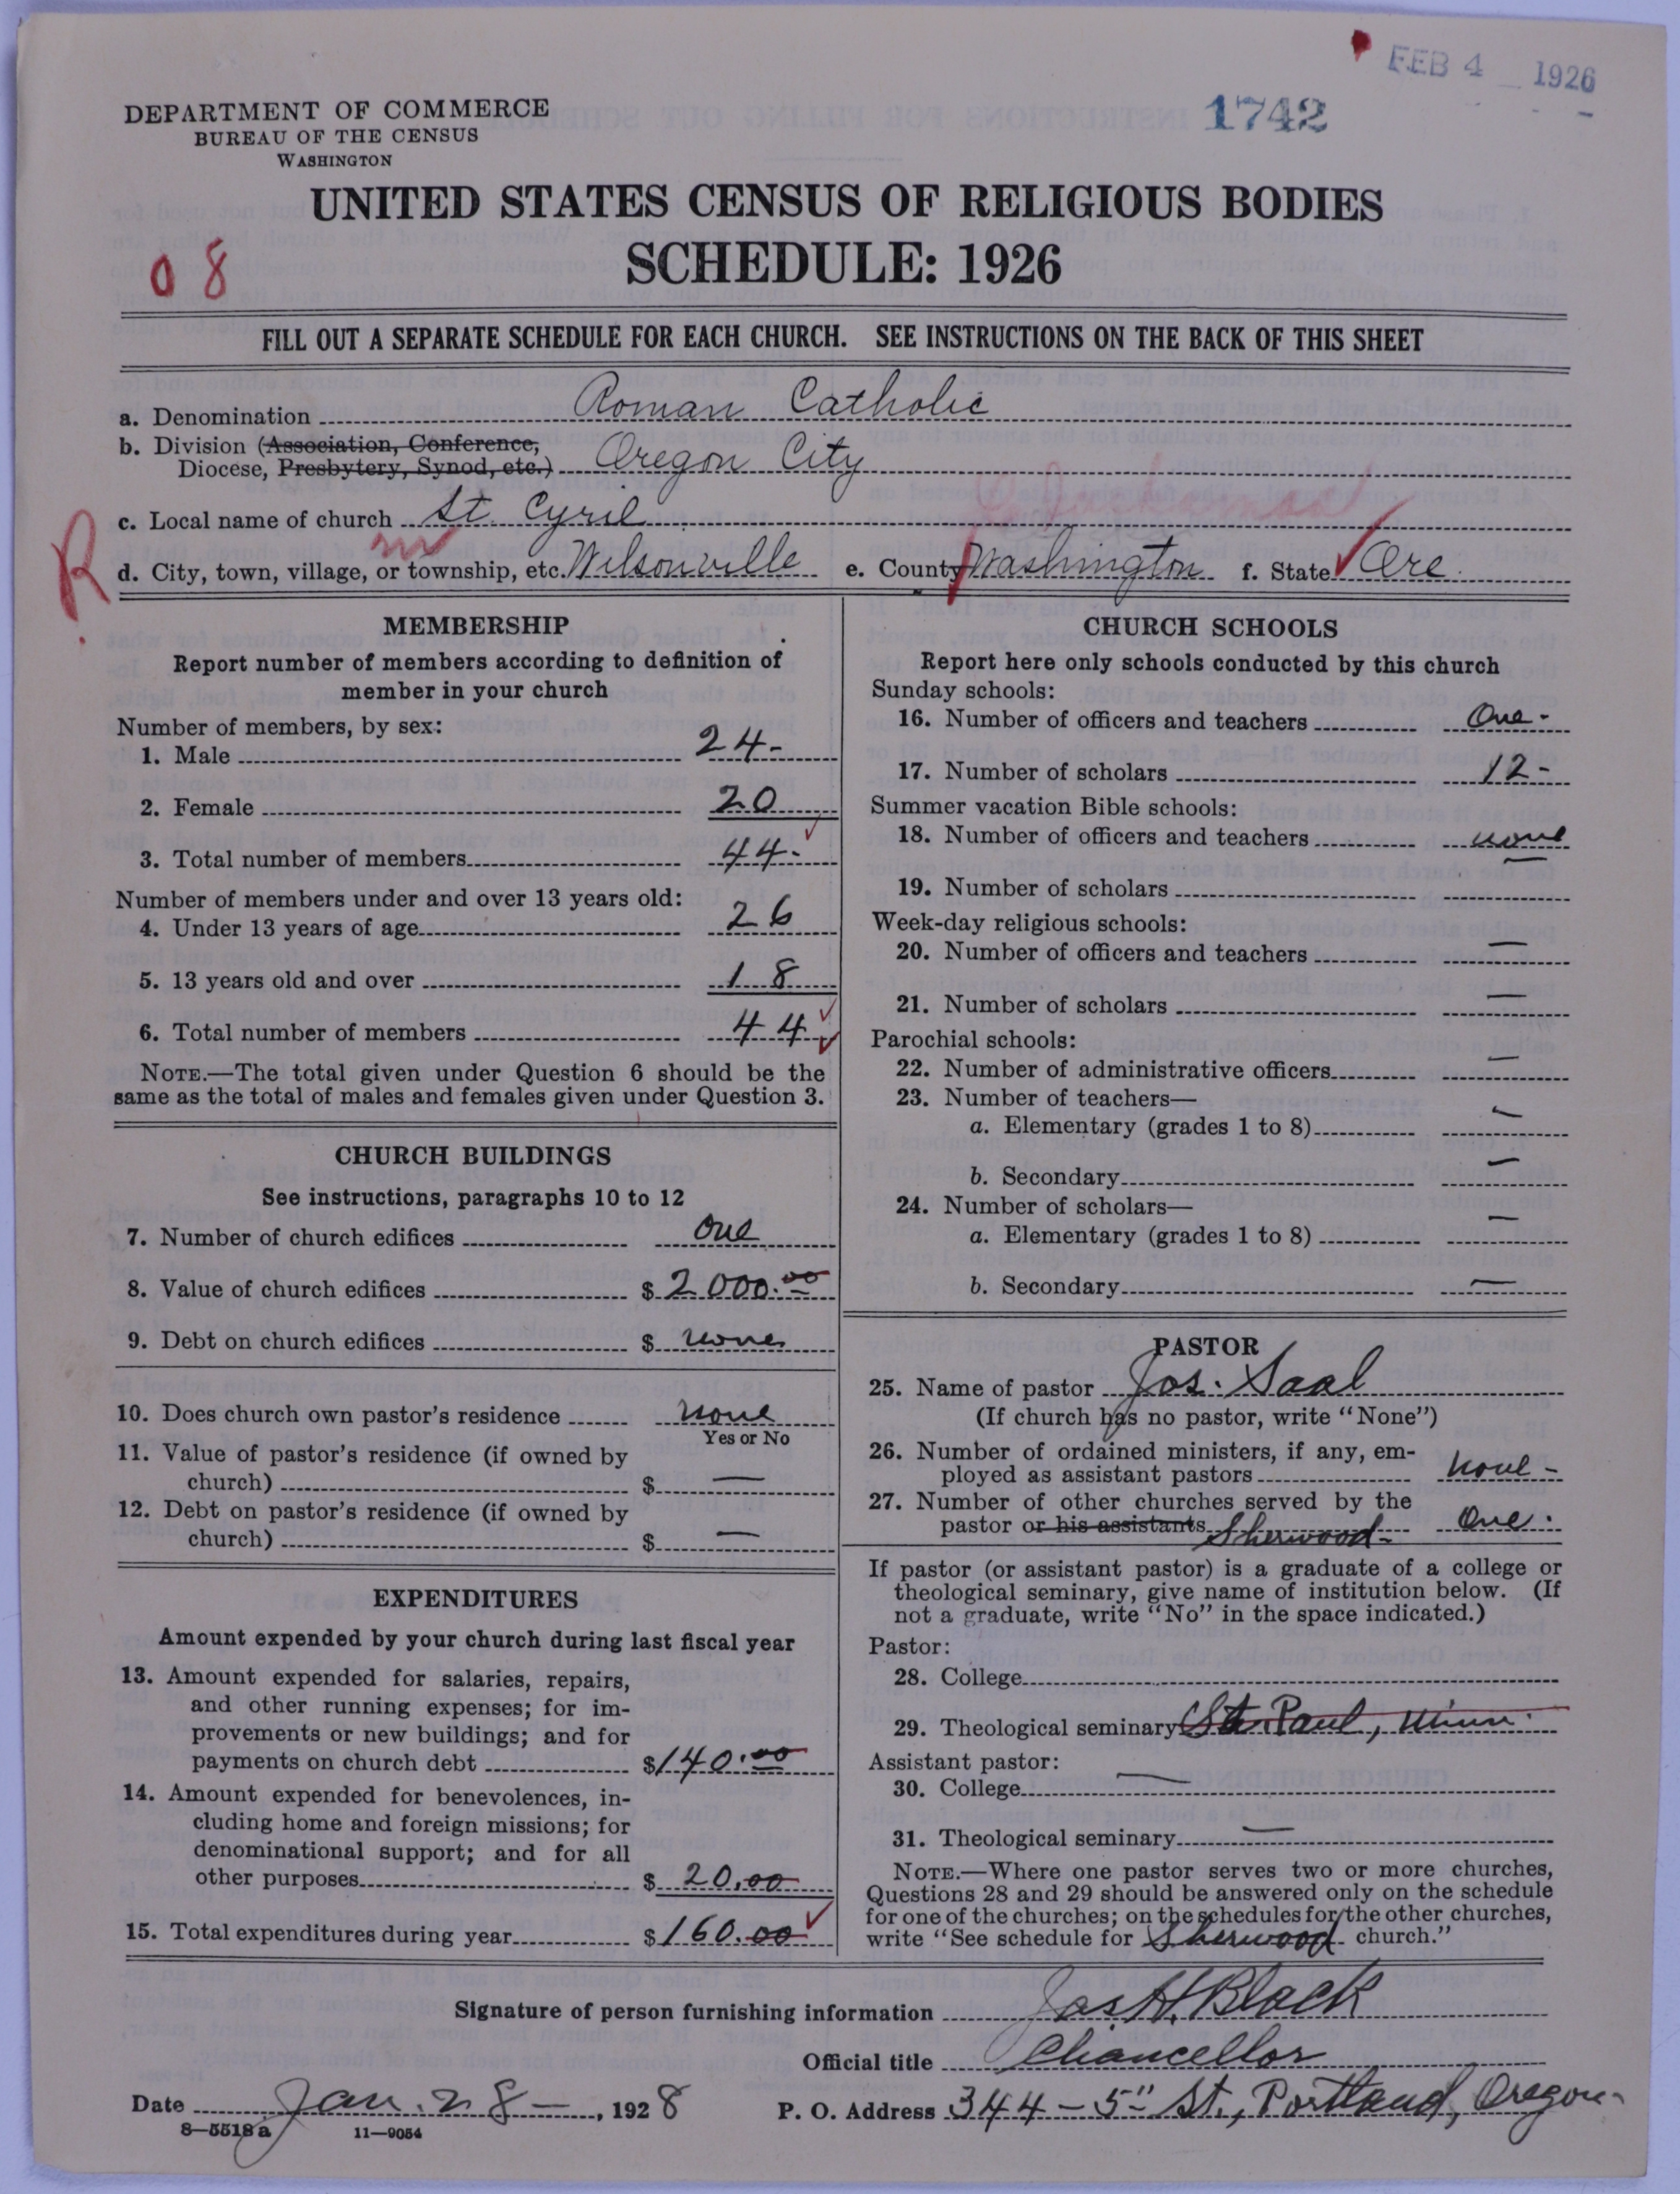 FEB 4 1926
1742
DEPARTMENT OF COMMERCE
BUREAU OF THE CENSUS
WASHINGTON
UNITED STATES CENSUS OF RELIGIOUS BODIES
SCHEDULE: 1926
08
FILL OUT A SEPARATE SCHEDULE FOR EACH CHURCH. SEE INSTRUCTIONS ON THE BACK OF THIS SHEET
a. Denomination Roman Catholic
b. Division (Association, Conference,
Diocese, Presbytery, Synod, etc.) Oregon City
c. Local name of church St. Cyril
R
d. City, town, village, or township, etc. Wilsonville e. County Washington f. State Ore.
MEMBERSHIP
Report number of members according to definition of
member in your church
Number of members, by sex:
1. Male 24-
2. Female 20
3. Total number of members 44-
Number of members under and over 13 years old:
4. Under 13 years of age 26
5. 13 years old and over 18
6. Total number of members 44
NOTE.—The total given under Question 6 should be the
same as the total of males and females given under Question 3.
CHURCH BUILDINGS
See instructions, paragraphs 10 to 12
7. Number of church edifices one
8. Value of church edifices $2000.00
9. Debt on church edifices $ none
10. Does church own pastor's residence none
Yes or No
11. Value of pastor's residence (if owned by
church) $ —
12. Debt on pastor's residence (if owned by
church) $ —
EXPENDITURES
Amount expended by your church during last fiscal year
13. Amount expended for salaries, repairs,
and other running expenses; for im-
provements or new buildings; and for
payments on church debt $140.00
14. Amount expended for benevolences, in-
cluding home and foreign missions; for
denominational support; and for all
other purposes $ 20.00
15. Total expenditures during year $160.00
CHURCH SCHOOLS
Report here only schools conducted by this church
Sunday schools:
16. Number of officers and teachers One-
17. Number of scholars 12-
Summer vacation Bible schools:
18. Number of officers and teachers none
19. Number of scholars —
Week-day religious schools:
20. Number of officers and teachers —
21. Number of scholars —
Parochial schools:
22. Number of administrative officers —
23. Number of teachers—
a. Elementary (grades 1 to 8) —
b. Secondary —
24. Number of scholars—
a. Elementary (grades 1 to 8) —
b. Secondary —
PASTOR
25. Name of pastor Jos. Saal
(If church has no pastor, write "None")
26. Number of ordained ministers, if any, em-
ployed as assistant pastors none-
27. Number of other churches served by the
pastor or his assistants Sherwood- One.
If pastor (or assistant pastor) is a graduate of a college or
theological seminary, give name of institution below. (If
not a graduate, write "No" in the space indicated.)
Pastor:
28. College
29. Theological seminary St. Paul, Minn.
Assistant pastor:
30. College —
31. Theological seminary —
NOTE.—Where one pastor serves two or more churches,
Questions 28 and 29 should be answered only on the schedule
for one of the churches; on the schedules for the other churches,
write "See schedule for Sherwood church."
Signature of person furnishing information Jas. H. Black
Official title Chancellor
Date Jan. 28-, 1928 P. O. Address 344-5" St., Portland, Oregon-
8-5518 a 11-9054